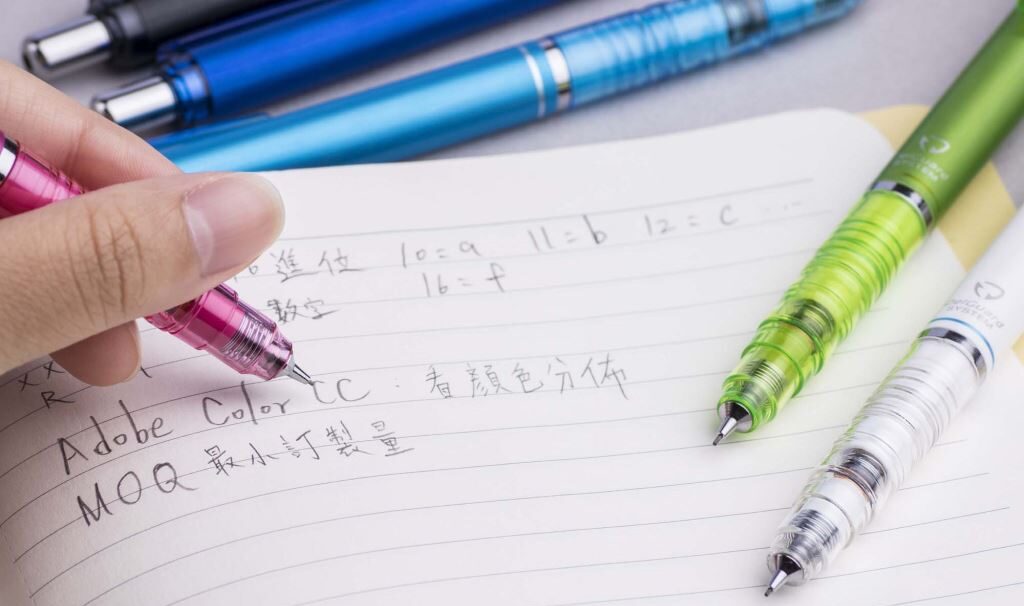 進位 10=a 11=b 12=c ...
16=f
數字
xx
R
Adobe Color CC : 看顏色分佈
MOQ 最小訂製量
DelGuard
SYSTEM
DelGuard
SYSTEM